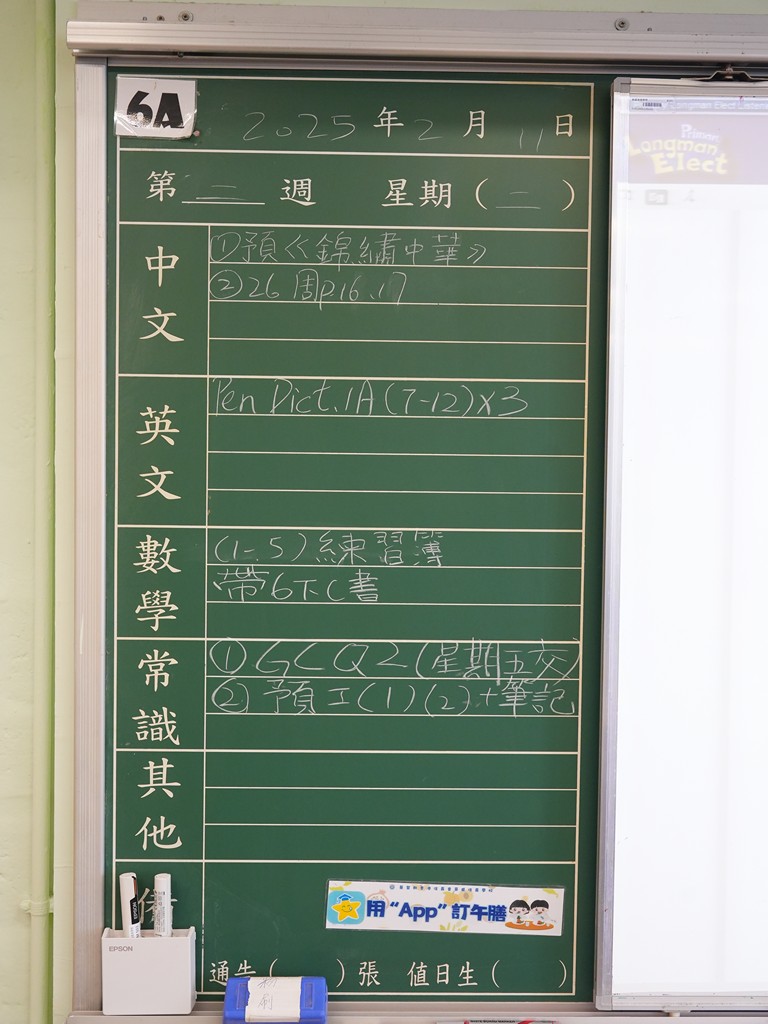 6A
2025 年 2 月 11 日
第 二 週 星期 ( 二 )
中文
①預《錦繡中華》
②26周p.16.17
英文
Pen Dict. 1A (7-12)x3
數學
(1-5)練習簿
帶6下C書
常識
①GCQ2(星期五交)
②預工(1)(2)+筆記
其他
用“App”訂午膳
通告( )張 值日生( )
EPSON
Longman Elect
Primary
Longman
Elect